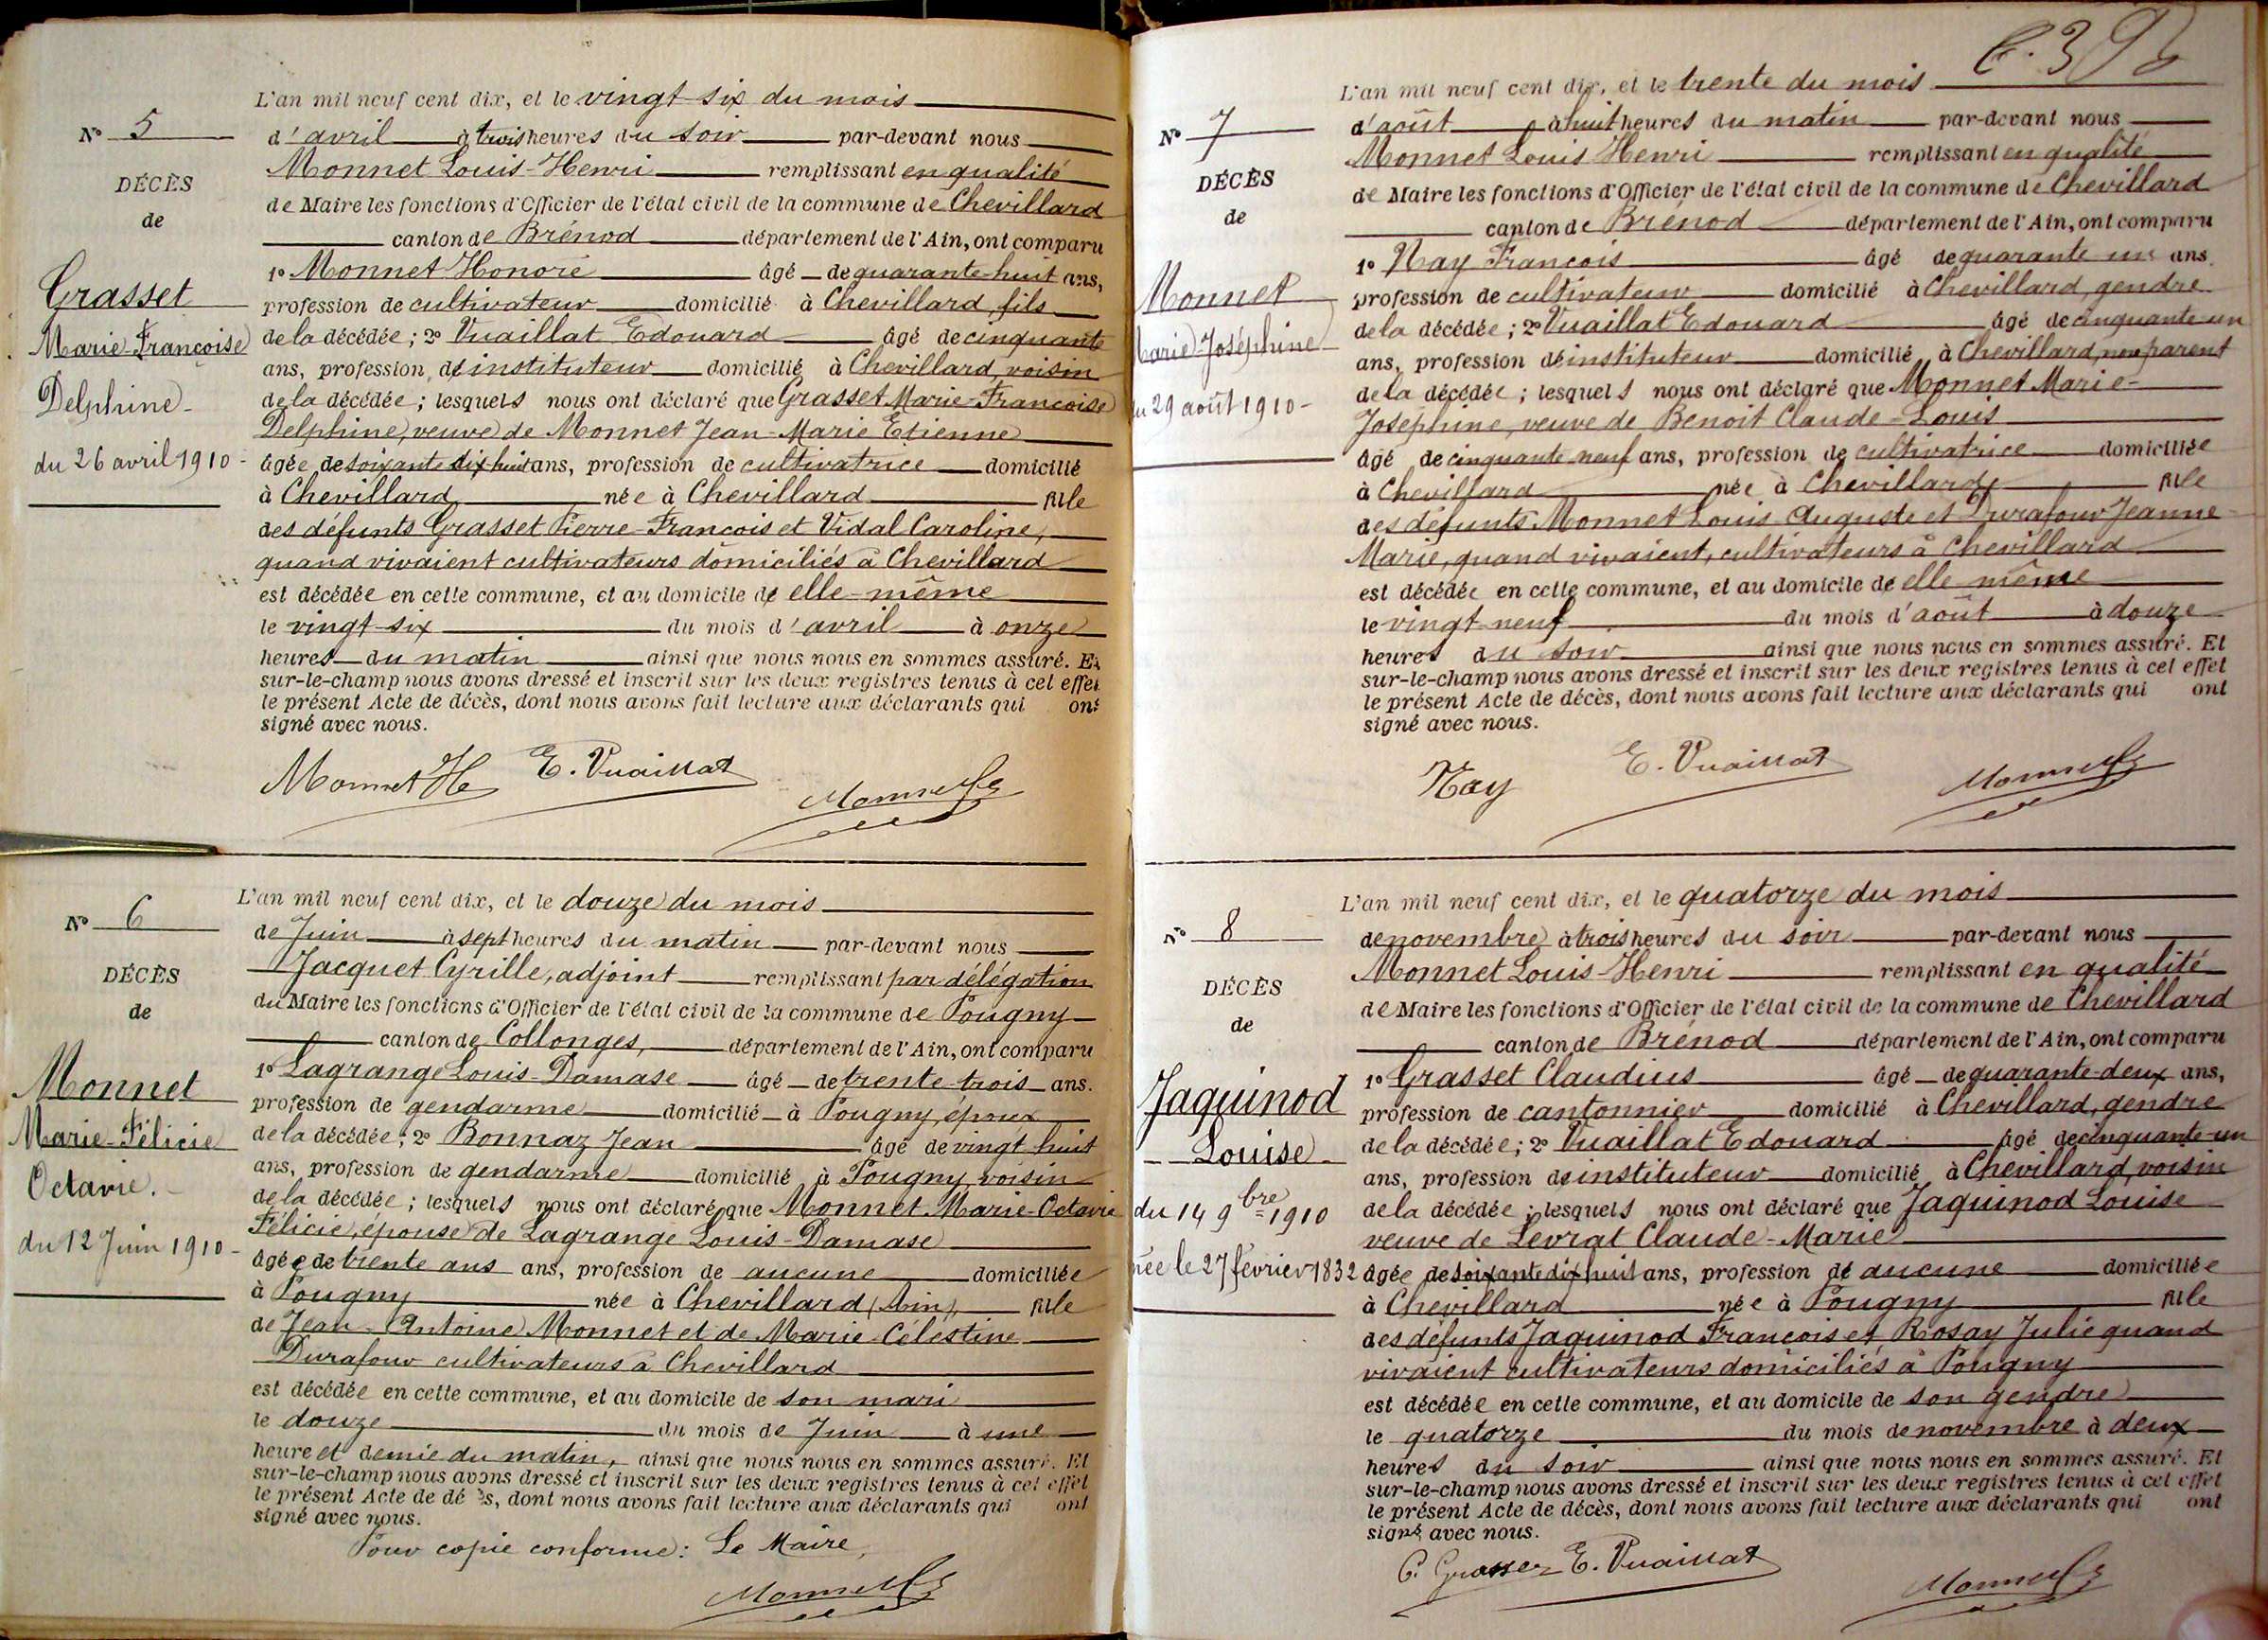 N° 5
DÉCÈS
de
Grasset
Marie-Françoise
Delphine
du 26 avril 1910
L'an mil neuf cent dix, et le vingt-six du mois
d'avril à trois heures du soir par-devant nous
Monnet Louis-Henri remplissant en qualité
de Maire les fonctions d'Officier de l'état civil de la commune de Chevillard
canton de Brénod département de l'Ain, ont comparu
1° Monnet Honoré âgé de quarante-huit ans,
profession de cultivateur domicilié à Chevillard, fils
de la décédée; 2° Vuaillat Edouard âgé de cinquante
ans, profession de instituteur domicilié à Chevillard, voisin
de la décédée; lesquels nous ont déclaré que Grasset Marie-Françoise
Delphine, veuve de Monnet Jean-Marie Etienne
âgée de soixante dix huit ans, profession de cultivatrice domicilié
à Chevillard née à Chevillard fille
des défunts Grasset Pierre-François et Vidal Caroline,
quand vivaient cultivateurs domiciliés à Chevillard
est décédée en cette commune, et au domicile de elle-même
le vingt-six du mois d'avril à onze
heures du matin ainsi que nous nous en sommes assuré. Et
sur-le-champ nous avons dressé et inscrit sur les deux registres tenus à cet effet
le présent Acte de décès, dont nous avons fait lecture aux déclarants qui ont
signé avec nous.
Monnet H E. Vuaillat
N° 6
DÉCÈS
de
Monnet
Marie-Félicie
Octavie.
du 12 Juin 1910
L'an mil neuf cent dix, et le douze du mois
de Juin à sept heures du matin par-devant nous
Jacquet Cyrille, adjoint remplissant par délégation
du Maire les fonctions d'Officier de l'état civil de la commune de Pougny
canton de Collonges, département de l'Ain, ont comparu
1° Lagrange Louis-Damase âgé de trente-trois ans.
profession de gendarme domicilié à Pougny, époux
de la décédée; 2° Bonnaz Jean âgé de vingt huit
ans, profession de gendarme domicilié à Pougny, voisin
de la décédée; lesquels nous ont déclaré que Monnet Marie-Octavie
Félicie, épouse de Lagrange Louis-Damase
âgée de trente ans ans, profession de aucune domiciliée
à Pougny née à Chevillard (Ain), fille
de Jean-Antoine Monnet et de Marie-Célestine
Durafour cultivateurs à Chevillard
est décédée en cette commune, et au domicile de son mari
le douze du mois de Juin à une
heure et demie du matin, ainsi que nous nous en sommes assuré. Et
sur-le-champ nous avons dressé et inscrit sur les deux registres tenus à cet effet
le présent Acte de décès, dont nous avons fait lecture aux déclarants qui ont
signé avec nous.
Pour copie conforme: Le Maire,
N° 7
DÉCÈS
de
Monnet
Marie-Joséphine
du 29 août 1910
L'an mil neuf cent dix, et le trente du mois
d'août à huit heures du matin par-devant nous
Monnet Louis Henri remplissant en qualité
de Maire les fonctions d'Officier de l'état civil de la commune de Chevillard
canton de Brénod département de l'Ain, ont comparu
1° Nay François âgé de quarante un ans.
profession de cultivateur domicilié à Chevillard, gendre
de la décédée; 2° Vuaillat Edouard âgé de cinquante-un
ans, profession de instituteur domicilié à Chevillard, non parent
de la décédée; lesquels nous ont déclaré que Monnet Marie-
Joséphine, veuve de Benoit Claude-Louis
âgé de cinquante neuf ans, profession de cultivatrice domiciliée
à Chevillard née à Chevillard, fille
des défunts Monnet Louis Auguste et Durafour Jeanne
Marie, quand vivaient, cultivateurs à Chevillard
est décédée en cette commune, et au domicile de elle même
le vingt neuf du mois d'août à douze
heures du soir ainsi que nous nous en sommes assuré. Et
sur-le-champ nous avons dressé et inscrit sur les deux registres tenus à cet effet
le présent Acte de décès, dont nous avons fait lecture aux déclarants qui ont
signé avec nous.
Nay E. Vuaillat
N° 8
DÉCÈS
de
Jaquinod
Louise
du 14 9bre 1910
née le 27 février 1832
L'an mil neuf cent dix, et le quatorze du mois
de novembre à trois heures du soir par-devant nous
Monnet Louis-Henri remplissant en qualité
de Maire les fonctions d'Officier de l'état civil de la commune de Chevillard
canton de Brénod département de l'Ain, ont comparu
1° Grasset Claudius âgé de quarante-deux ans,
profession de cantonnier domicilié à Chevillard, gendre
de la décédée; 2° Vuaillat Edouard âgé de cinquante-un
ans, profession de instituteur domicilié à Chevillard, voisin
de la décédée; lesquels nous ont déclaré que Jaquinod Louise
veuve de Levrat Claude-Marie
âgée de soixante dix huit ans, profession de aucune domiciliée
à Chevillard née à Pougny fille
des défunts Jaquinod François et Rosay Julie quand
vivaient cultivateurs domiciliés à Pougny
est décédée en cette commune, et au domicile de son gendre
le quatorze du mois de novembre à deux
heures du soir ainsi que nous nous en sommes assuré. Et
sur-le-champ nous avons dressé et inscrit sur les deux registres tenus à cet effet
le présent Acte de décès, dont nous avons fait lecture aux déclarants qui ont
signé avec nous.
C. Grasset E. Vuaillat